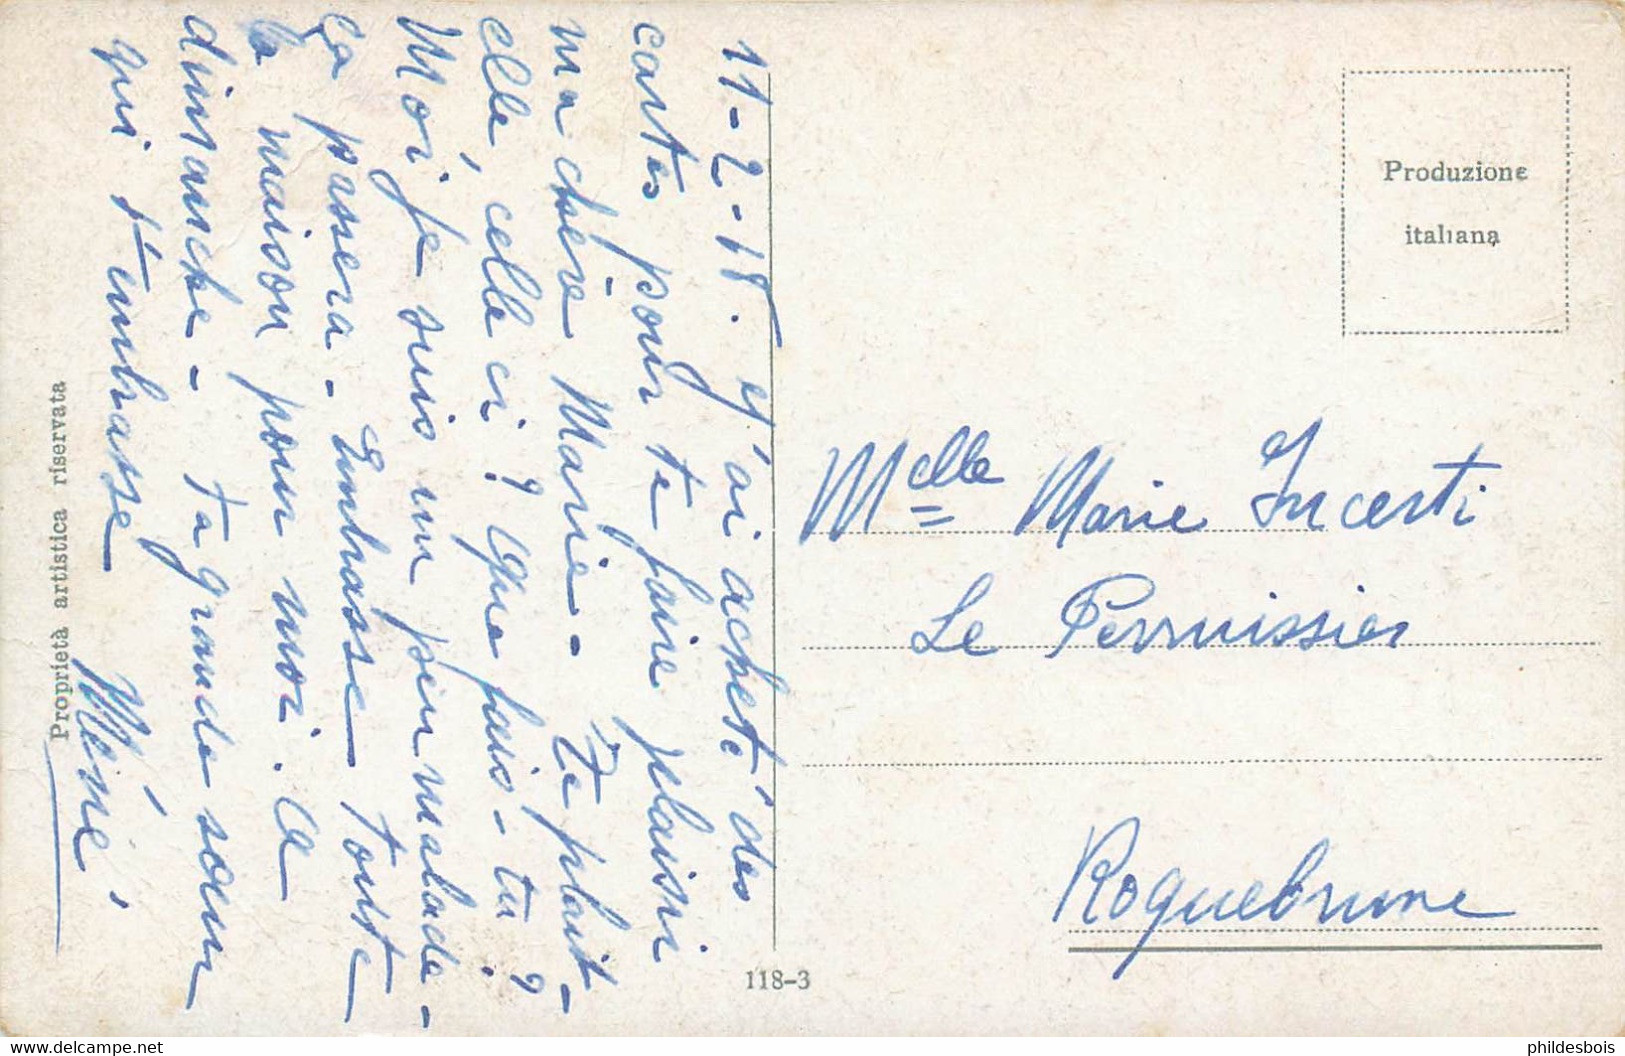 11-2-18. J'ai acheté des
cartes pour te faire plaisir
ma chère Marie - Te plait-
elle, celle ci ? Que fais-tu ?
Moi je suis un peu malade -
ça passera - Embrasse toute
la maison pour moi. A
dimanche - Ta grande sœur
qui t'embrasse
Méné
Proprietà artistica riservata
118-3
Produzione
italiana
Melle Marie Incerti
Le Perruissier
Roquebrune
phildesbois